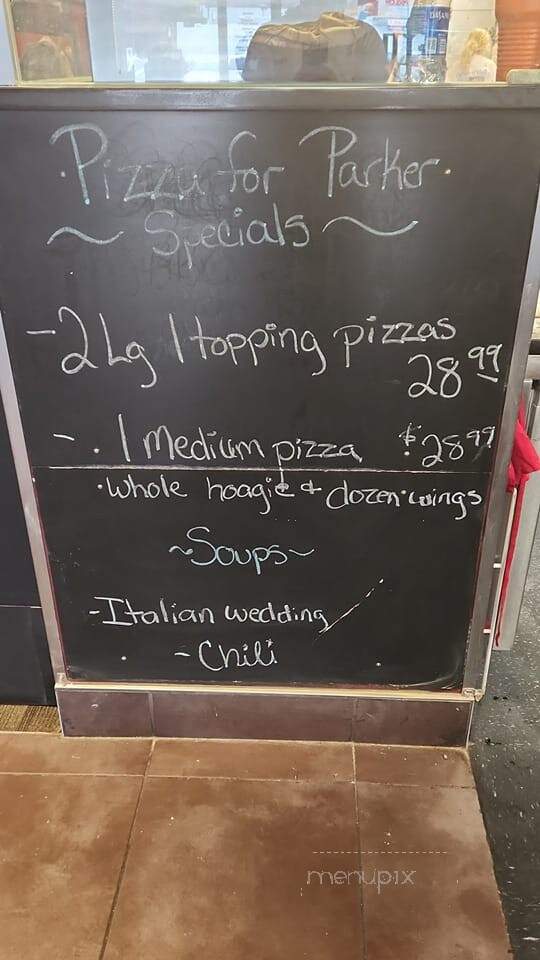 Pizza for Parker
~ Specials ~
- 2 Lg 1 topping pizzas
28 99
- 1 Medium pizza $28 99
whole hoagie + dozen wings
~Soups~
- Italian wedding
- Chili
menupix